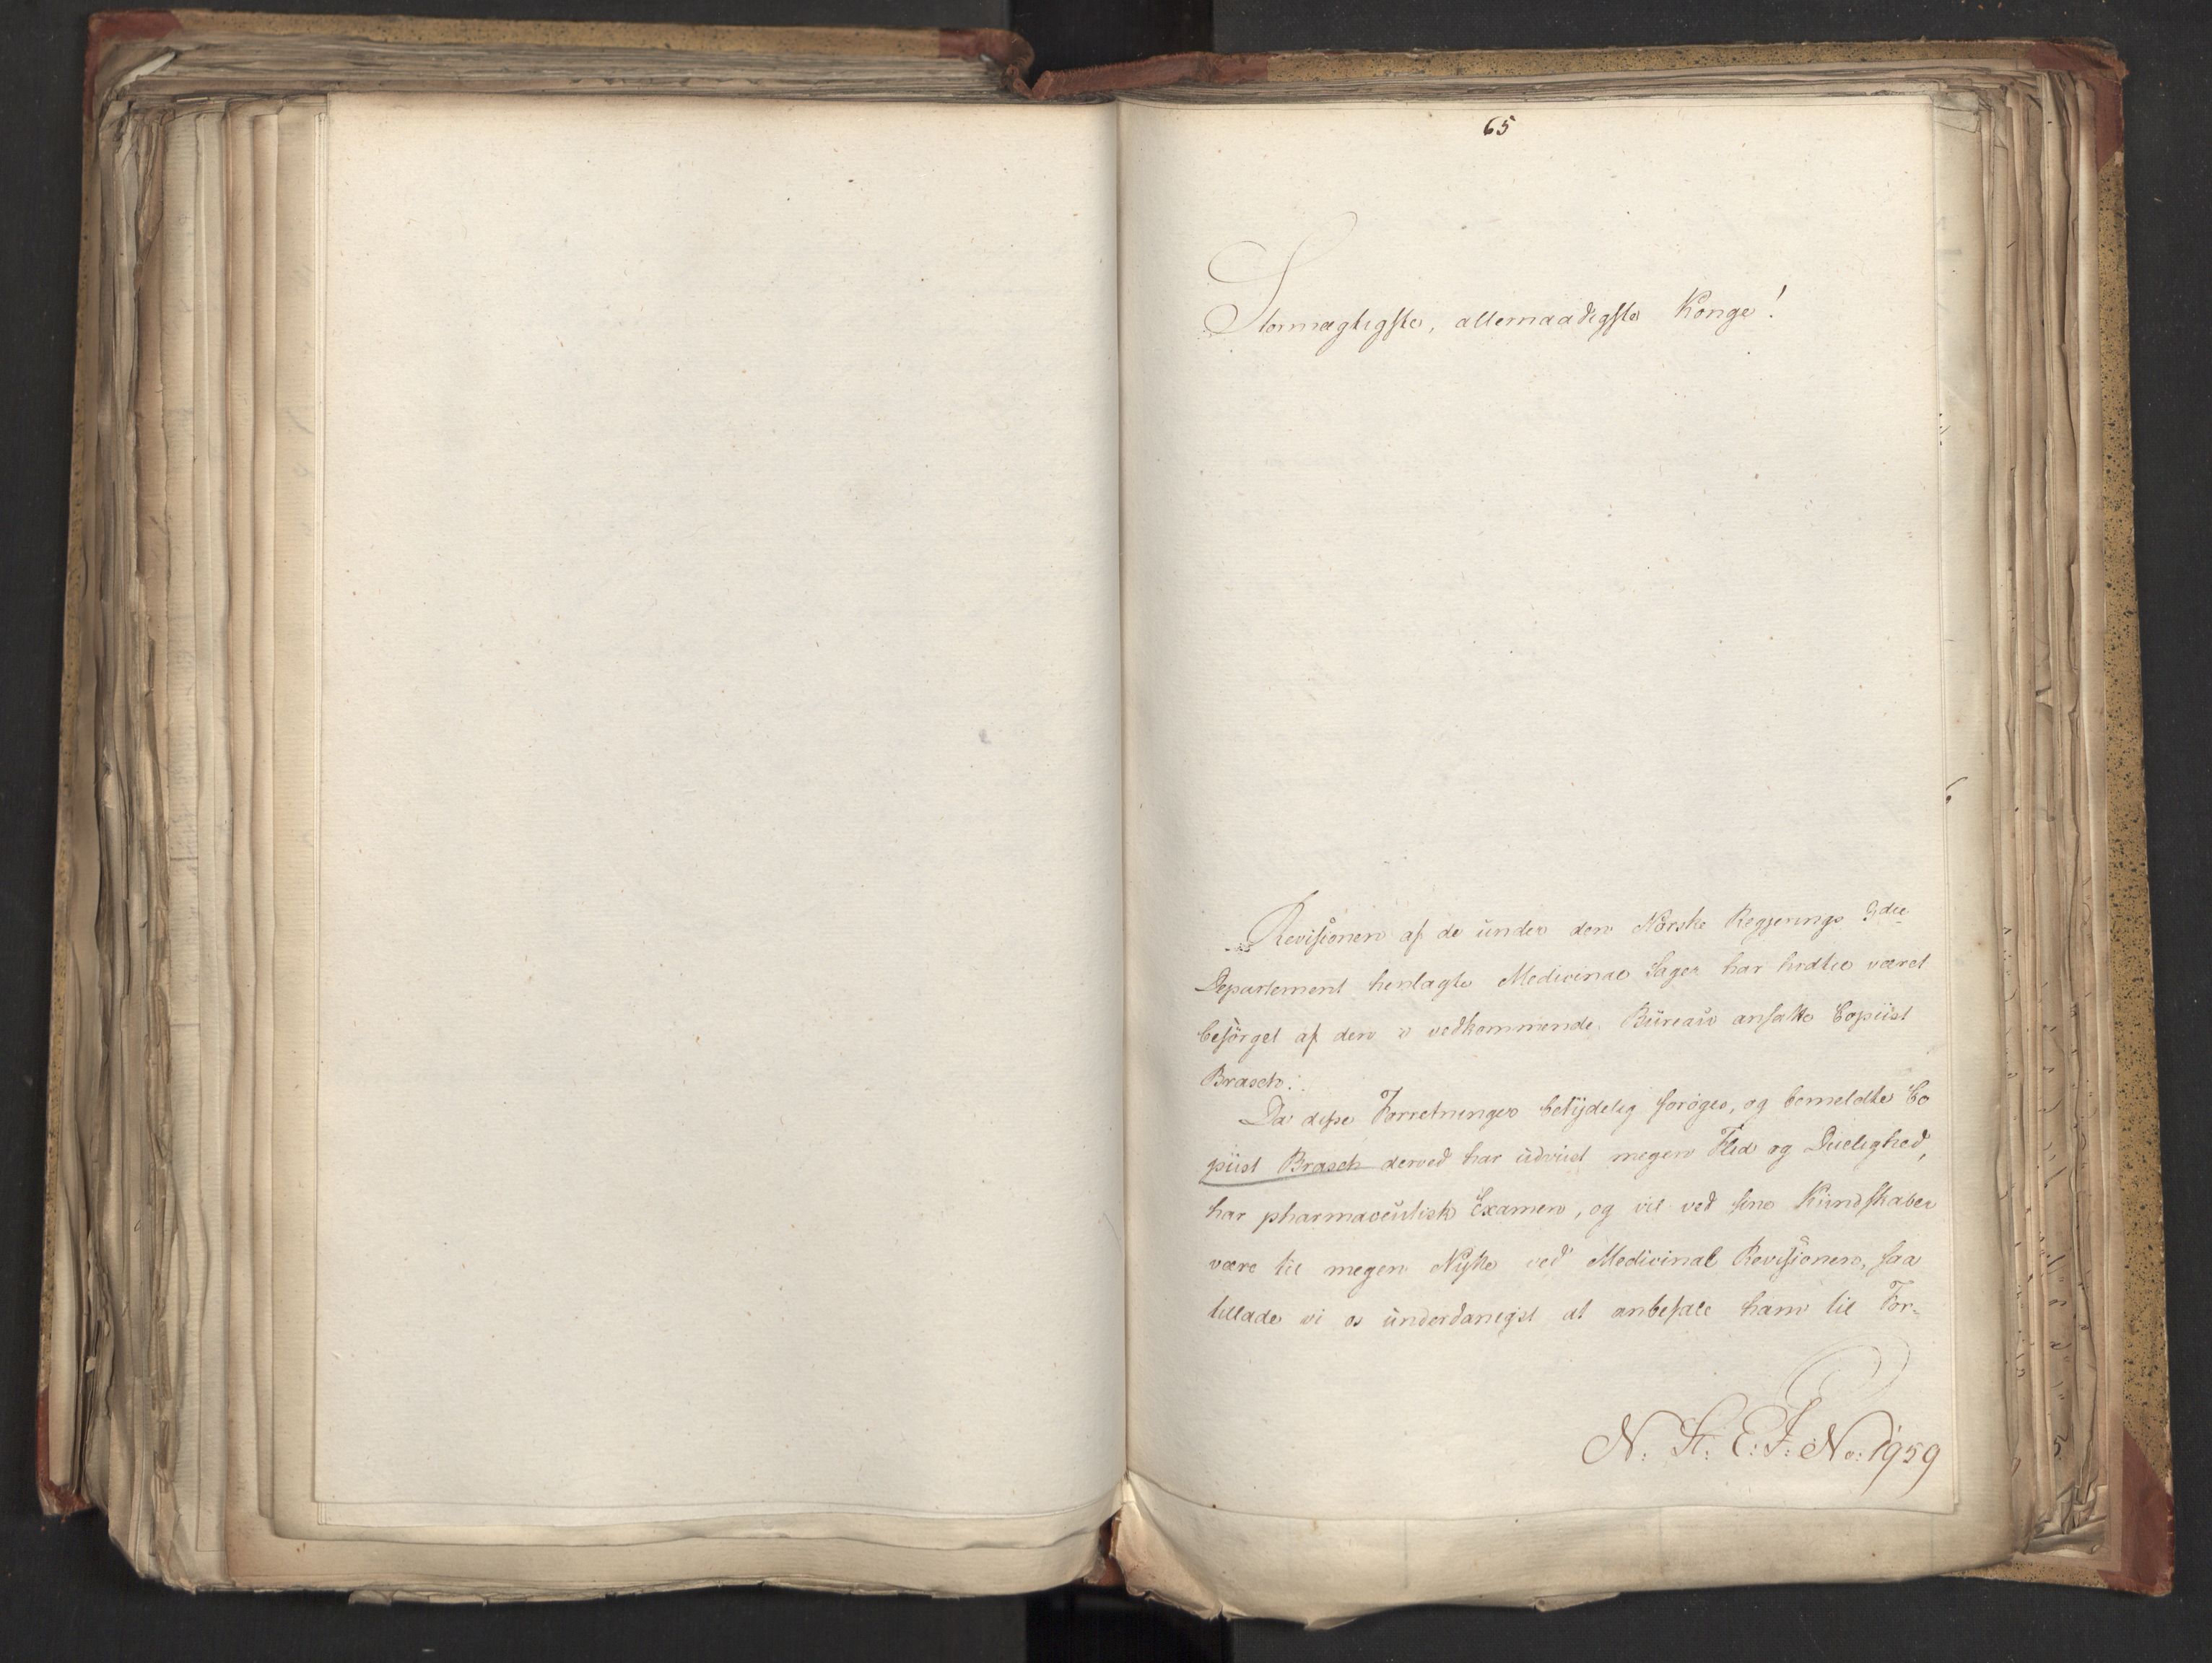 65
Stormægtigste, allernaadigste Konge!
Revisionen af de under den Norske Regjerings 2det
Departement henlagte Medicinal Sager har hidtil været
besörget af den i vedkommende Büreau ansatte Copiist
Brasch.
Da disse Forretninger betydelig foröges, og bemeldte Co
piist Brasch derved har udviist megen Flid og Duelighed,
har pharmaceutisk Examen, og vil ved sine Kundskaber
være til megen Nytte ved Medicinal Revisionen, saa
tillade vi os underdanigst at anbefale ham til For-
N. St: E: J: No: 1959